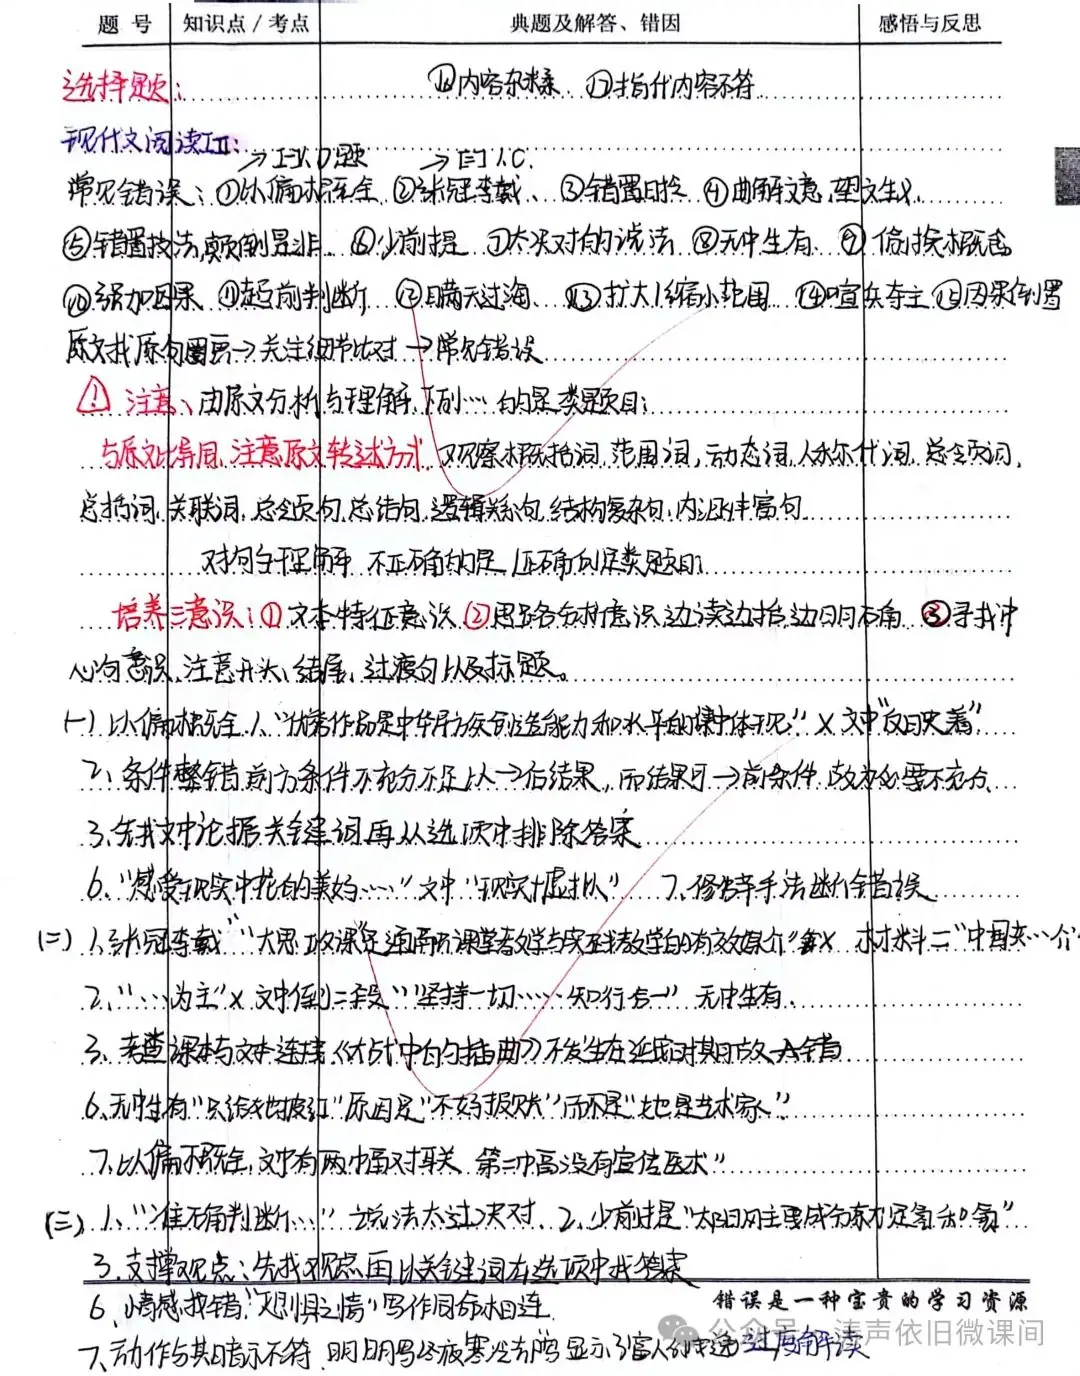 题 号 知识点/考点 典题及解答、错因 感悟与反思
选择题: ⑯内容杂糅 ⑰指代内容不符
现代文阅读ⅠⅡ:
常见错误:①以偏概全 ②张冠李戴、③错置时态 ④曲解文意,望文生义.
⑤错置技法,颠倒是非. ⑥少前提 ⑦太决对的说法 ⑧无中生有. ⑨偷换概念
⑩强加因果、⑪超前判断 ⑫瞒天过海 ⑬扩大/缩小范围 ⑭喧宾夺主 ⑮因果倒置
原文找原句圈画→关注细节比对→常见错误
! 注意、由原文分析与理解,下列…的是类题目:
与原文比异同,注意原文转述方式 观察概括词,范围词,动态词,人称代词,总领词,
总括词,关联词,总领句,总结句,逻辑关系句,结构复杂句,内涵丰富句
对 理解 不正确的是/正确的是类题目:
培养三意识:①文本特征意识 ②思路分析意识,边读边括,边明确 ③寻找中
心句意识,注意开头、结尾,过渡句以及标题。
(一) 以偏概全.1."优秀作品是中华民族创造能力和水平的集中体现" × 文中"
2、条件整错,前方条件不充分不足以→后结果,而结果可→前条件,故为必要不充分.
3.先找文中论据关键词再从选项中排除答案
6."感受现实中花的美好……"文中"现实+虚拟" 7.修辞手法判断错误
(二) 1.张冠李戴"大思政课"是 课堂教学与实践教学的有效媒介" × 材料二"中国共…介"
2."…为主"×文中倒二段"坚持一切……知行合一" 无中生有.
3.考查课本与文本连接《大战中的插曲》不发生在延安时期故A错
6.无中生有"只给我披红"原因是"不好 "而不是"也是艺术家"
7.以偏概全,文中有两 面对 没有宣传医术"
(三) 1."准确判断……"说法太过决对、2.少前提"太阳风主要成分 是氢和氦"
3.支撑观点:先找观点再以关键词在选项中找答案
6.情感找错." 之情"写作同命相连.
错误是一种宝贵的学习资源
7.动作与其暗示不符. 过度解读
公众号·涛声依旧微课间